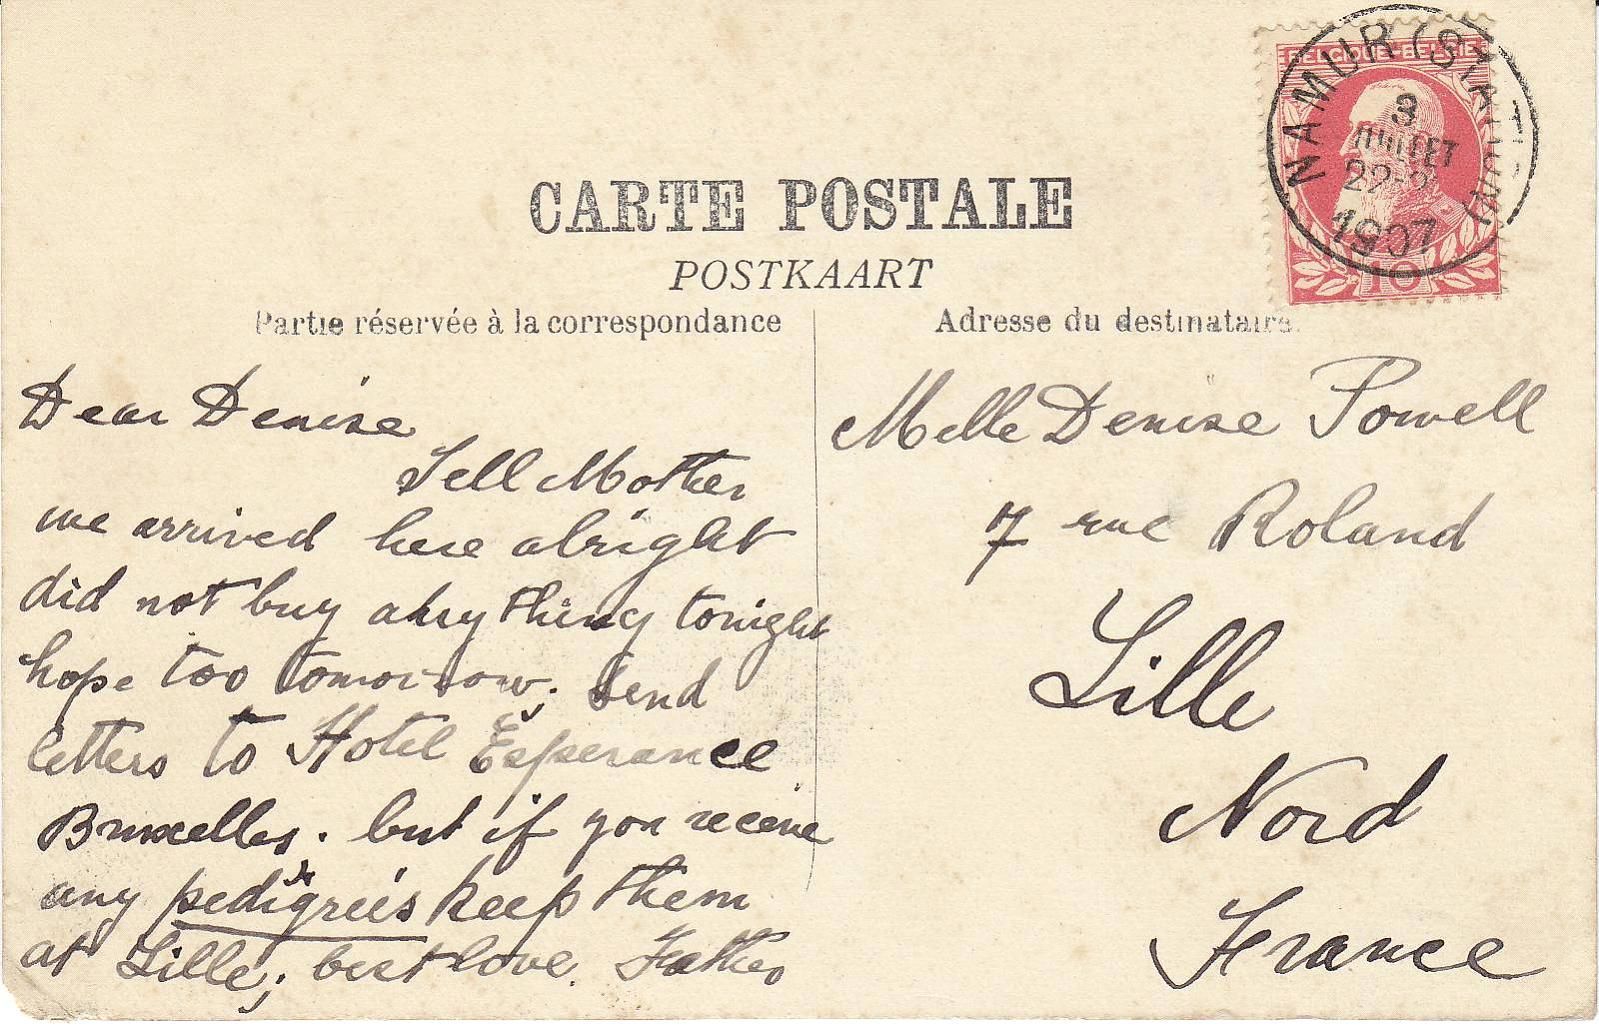 BELGIQUE-BELGIË
NAMUR (STATION)
3
JUILLET
22-
1907
10
CARTE POSTALE
POSTKAART
Partie réservée à la correspondance
Adresse du destinataire.
Dear Denise
Tell Mother
we arrived here alright
did not buy any thing tonight
hope too tomorrow. Send
letters to Hotel Esperance
Bruxelles. but if you receive
any pedigreés keep them
at Lille; best love. Father
Melle Denise Powell
7 rue Roland
Lille
Nord
France